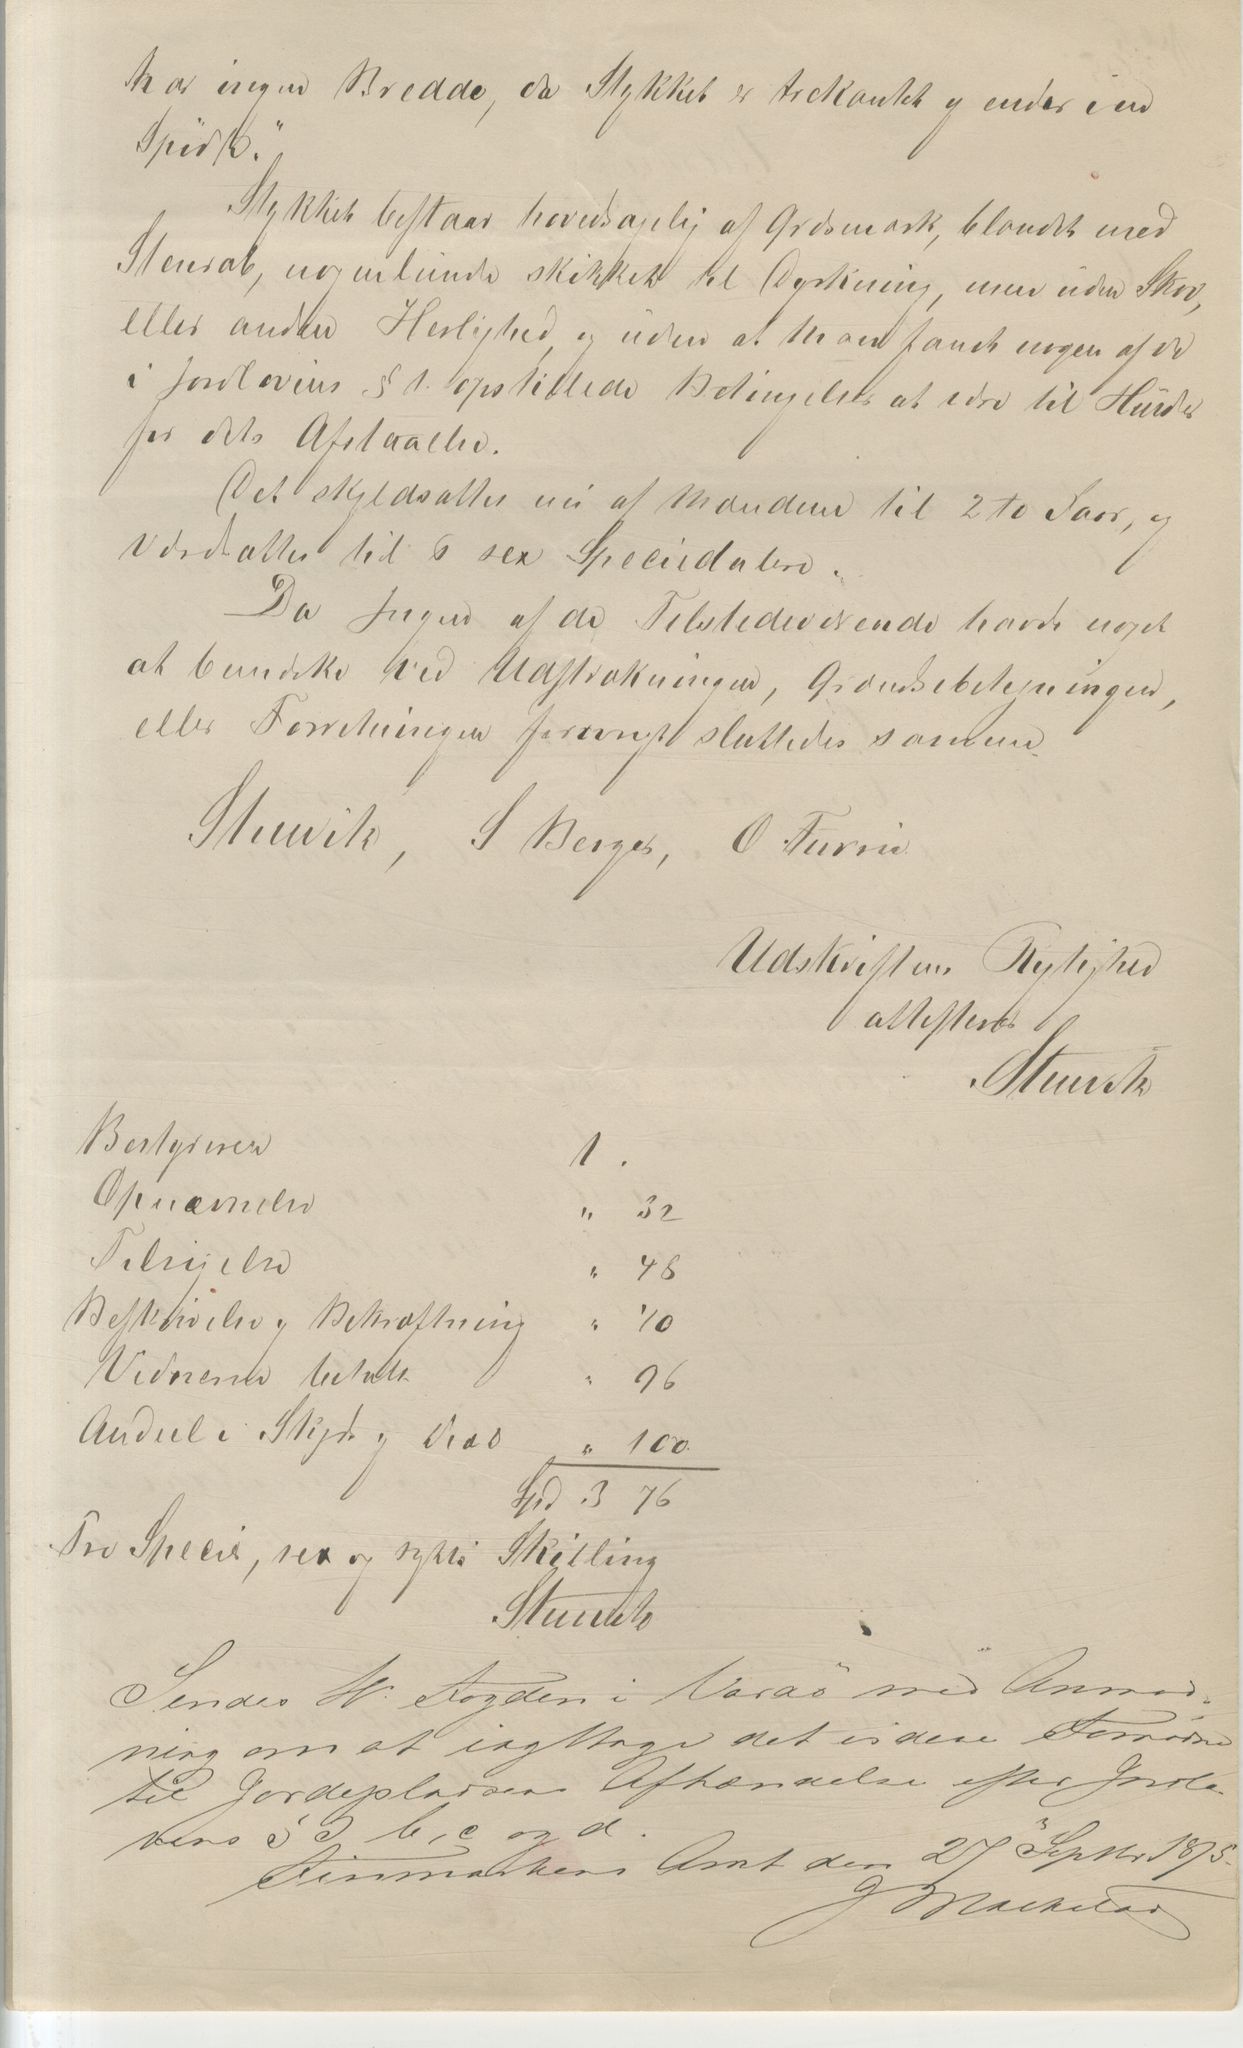 har ingen Bredde, da Stykket er trekantet og ender i en
Spids."
Stykket bestaar hovedsagelig af Græsmark, blandet med
Stenrab, nogenlunde skikket til Dyrkning, men uden Skov,
eller anden Herlighed, og uden at man fandt nogen af de
i Jordlovens § 1. opstillede Betingelser at være til Hinder
for dets Afstaaelse.
Det skyldsattes nu af Mændene til 2 to Sær, og
værdsattes til 6 sex Speciedalere.
Da Ingen af de Tilstedeværende havde noget
at bemærke ved Udstrækningen, Grændsebetegningen,
eller Forretningen forøvrigt sluttedes samme.
Stuwik, S Berger, O Furrin
Udskriftens Rigtighed
attesteres
Stuwik
Bestyreren 1 .
Opnævnelse " 32
Tilsigelse " 48
Beskrivelse og Bekræftning " 40
Vidnerne betalt " 96
Andeel i Skyds og Diæt " 100
Spd 3 76
Tre Species, sex og sytti Skilling
Stuwik
Sendes Hr. Fogden i Vardö med Anmod-
ning om at iagttage det videre Fornødne
til Jordepladsens Afhændelse efter Jordlo-
vens § 3 b, c og d.
Finmarkens Amt den 27 Septbr. 1875.